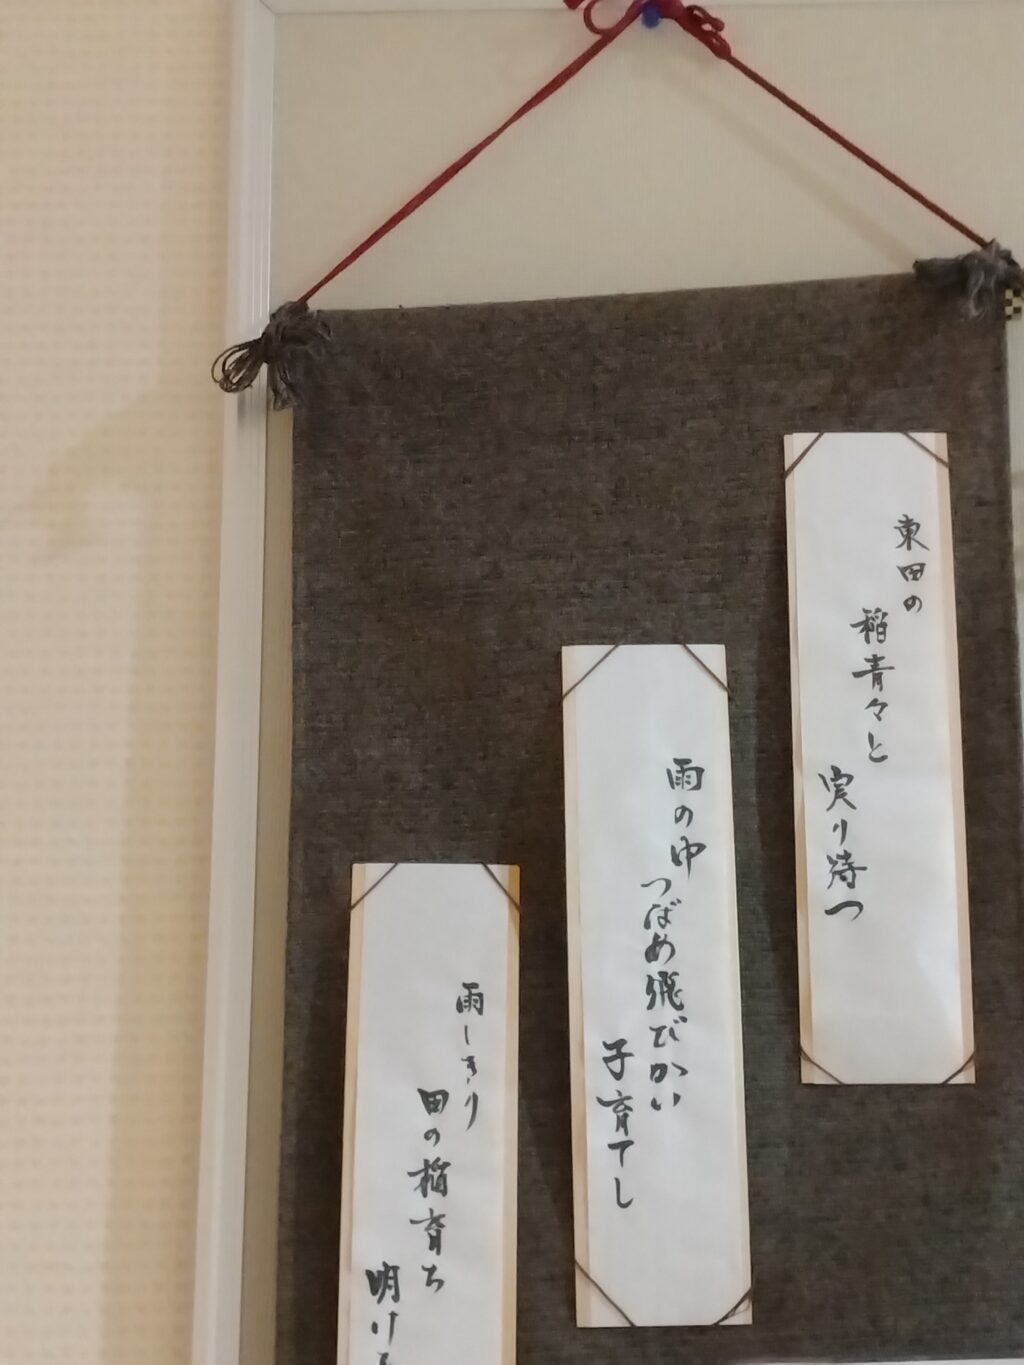 東田の
稲青々と
実り待つ
雨の中
つばめ飛びかい
子育てし
雨しきり
田の稲育ち
明ける